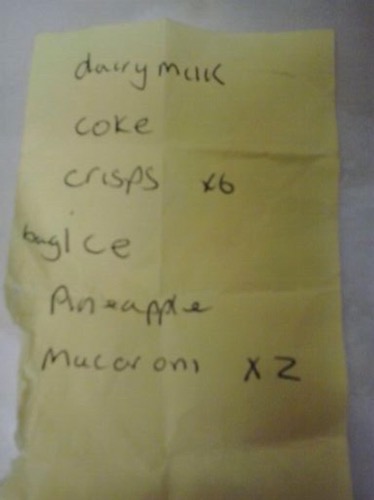 dairy milk
coke
crisps x6
bag Ice
Pineapple
Macaroni x 2